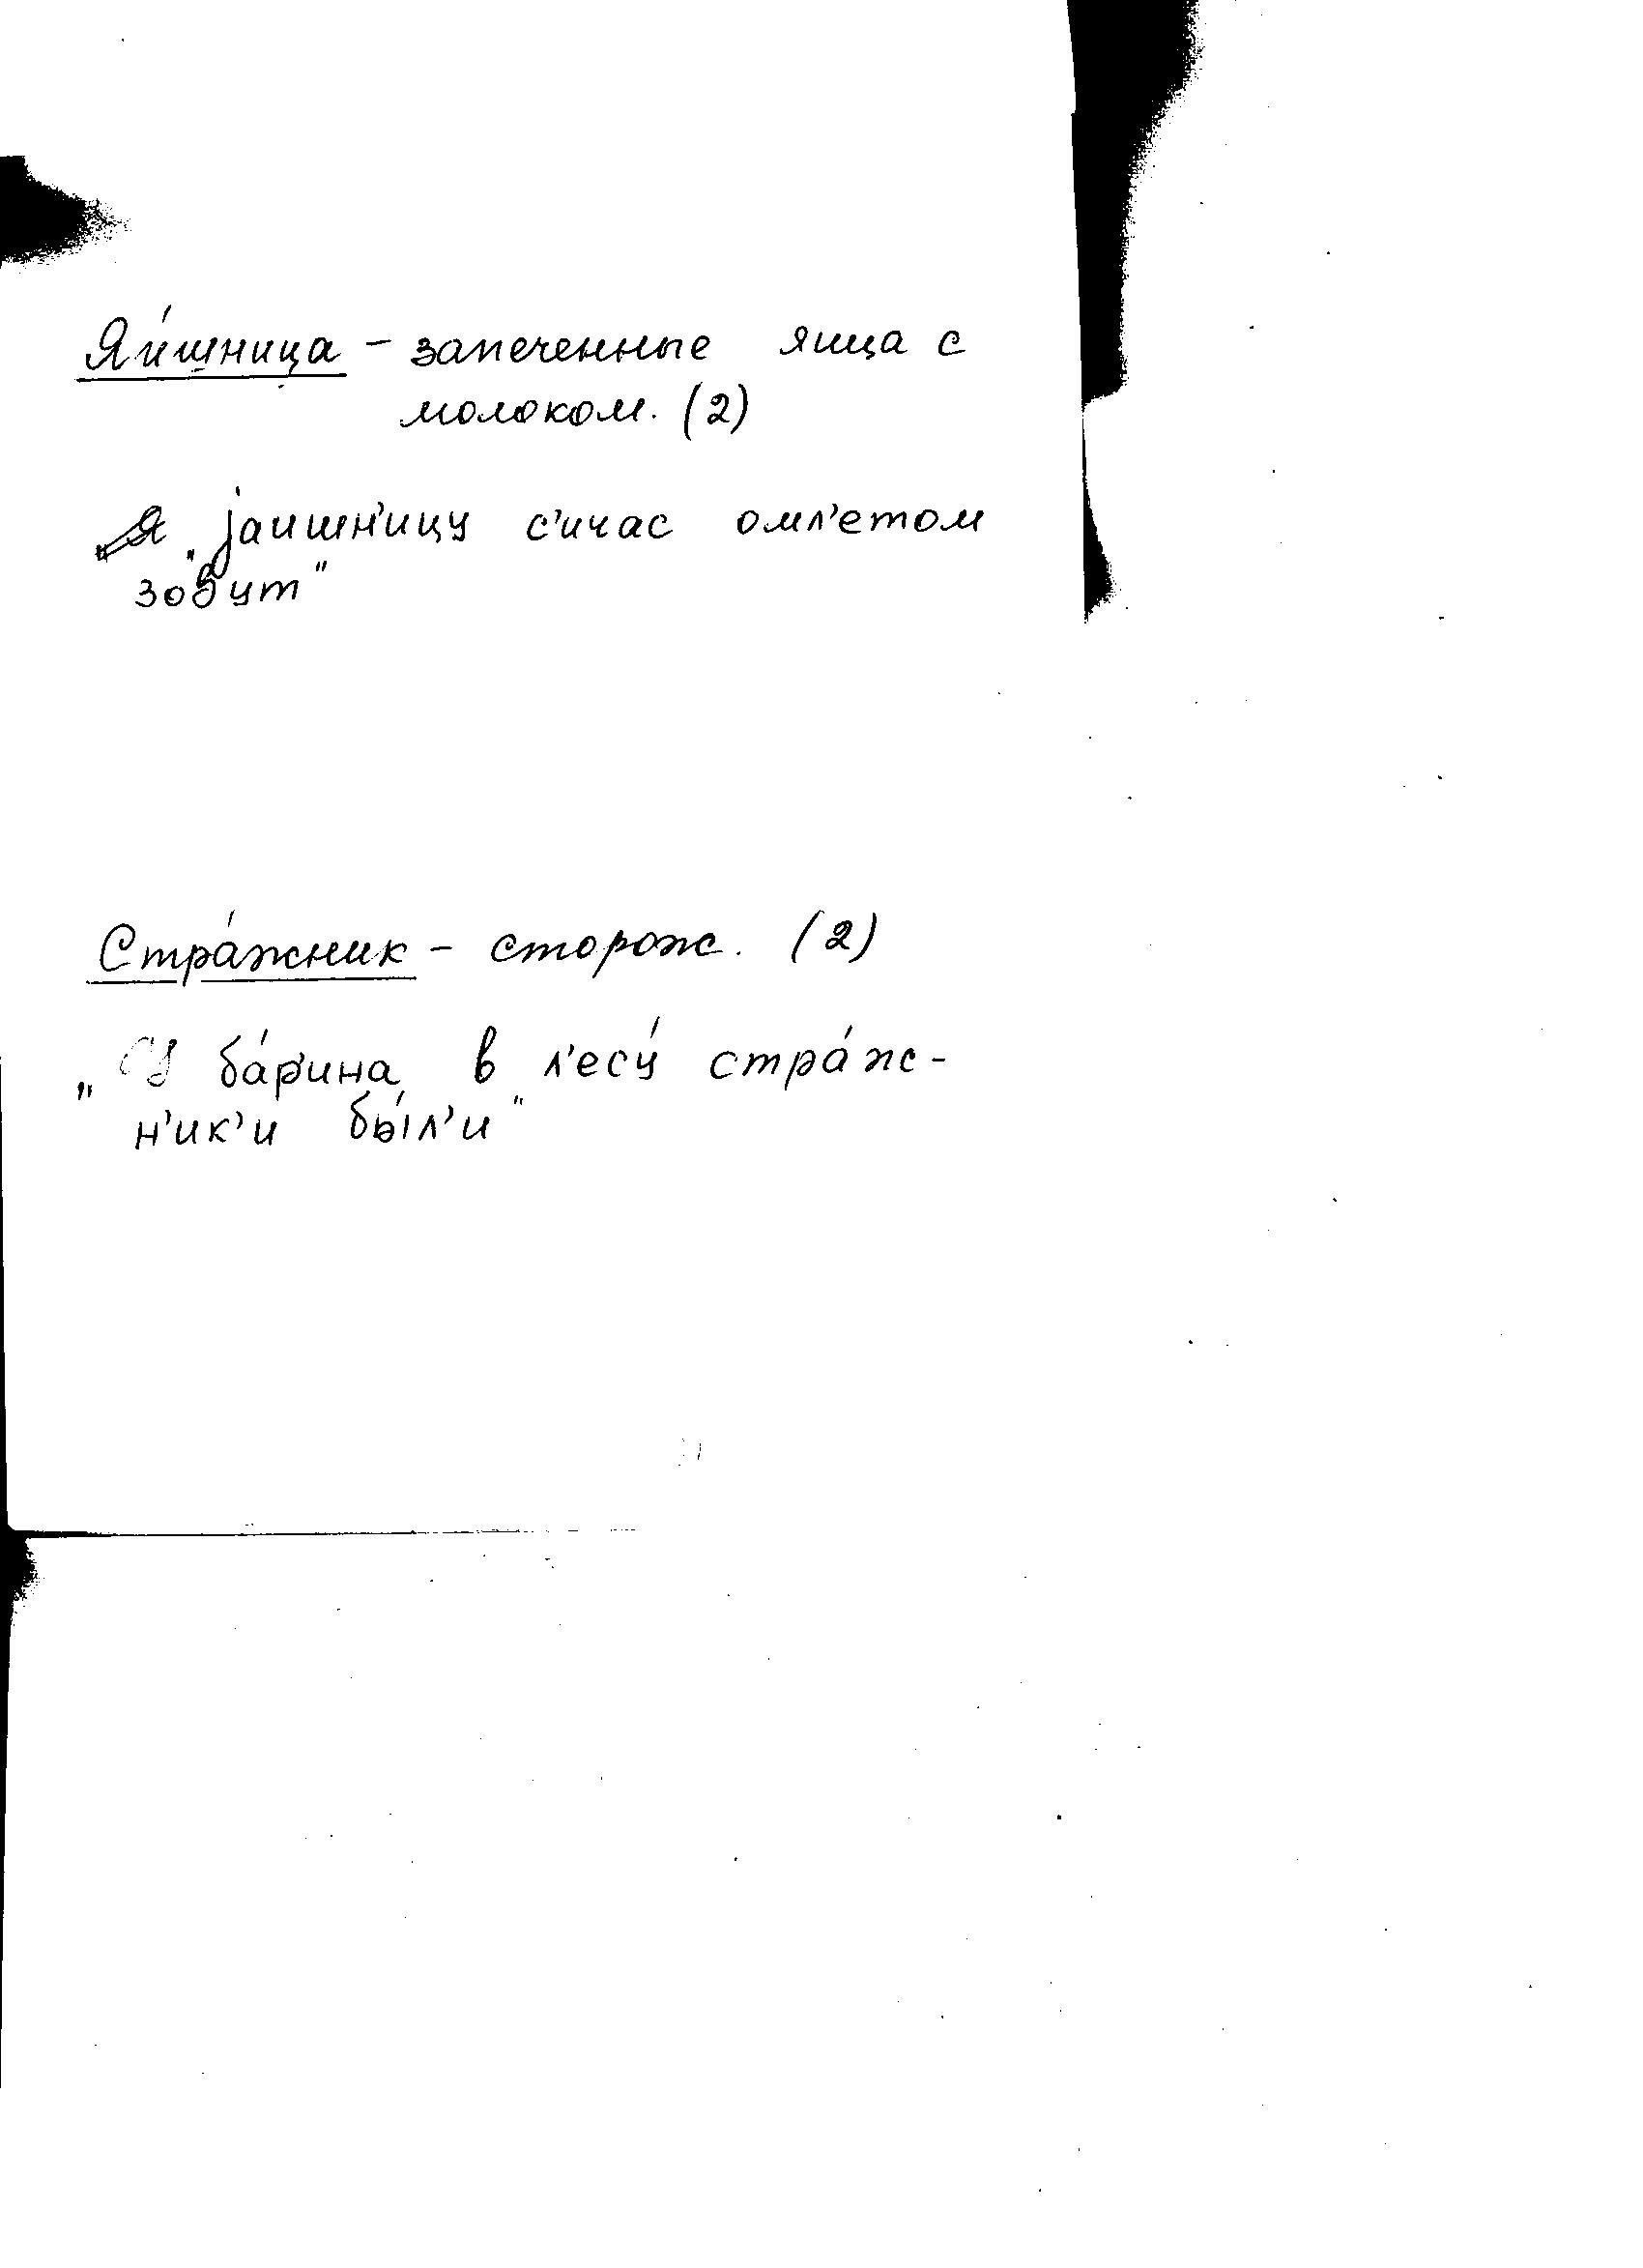 Яи́шница – запеченные яйца с
молоком. (2)
„jаишн'ицу с'ичас омл'етом
зовут"
Стра́жник – сторож. (2)
„У ба́р'ина в л'есу́ стра́ж-
н'ик'и бы́л'и"